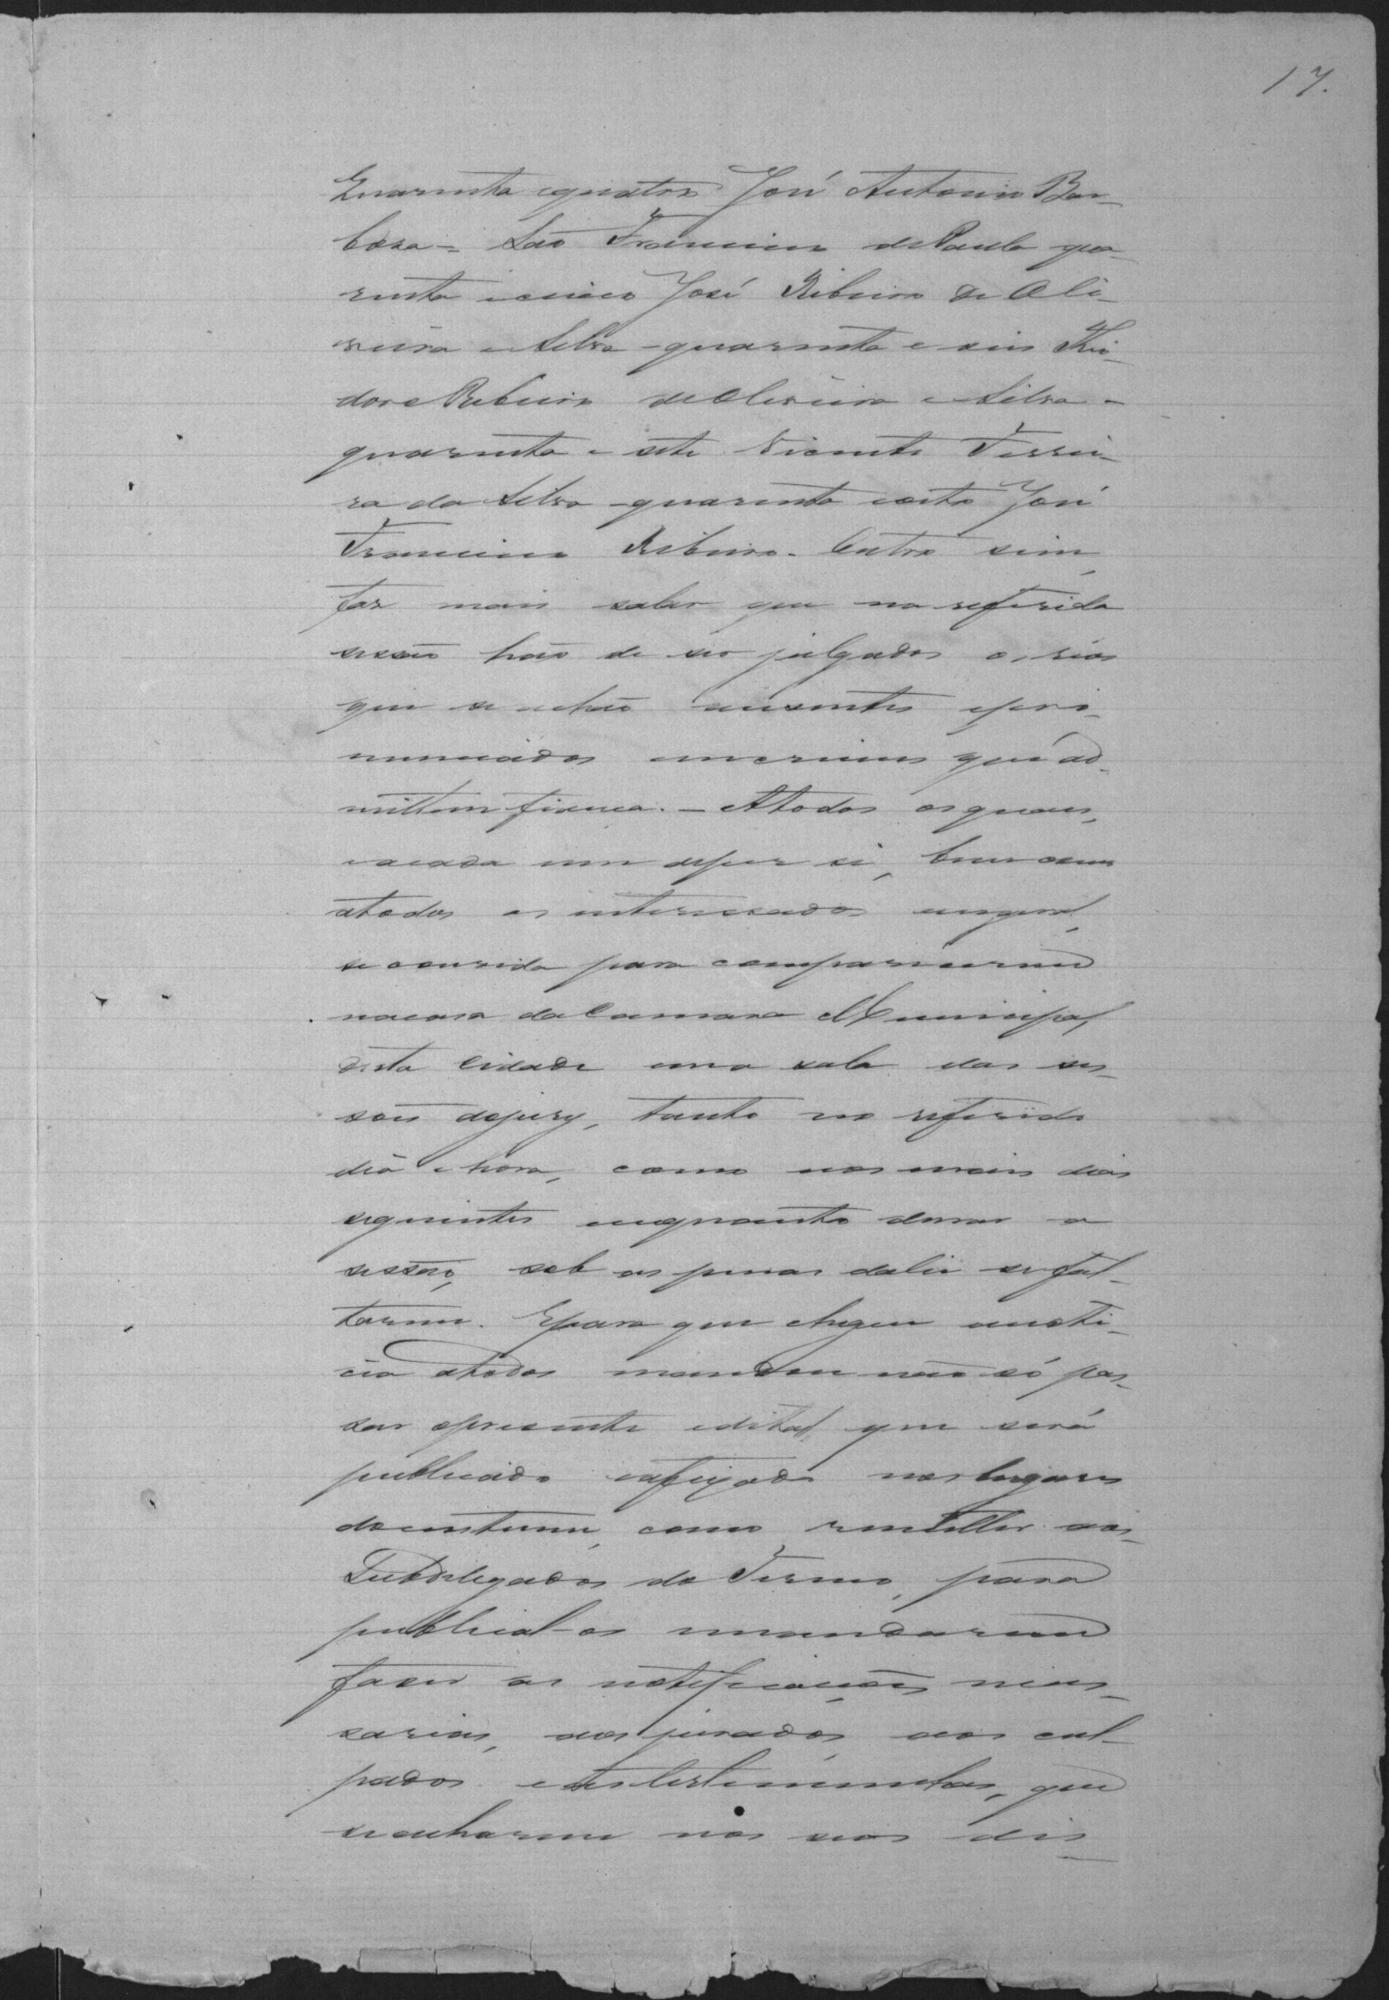 17.
Quarenta equatro José Antonio Bar-
boza = São Francisco de Paula qua-
renta ecinco José Ribeiro de Oli-
veira e Silva - quarenta e seis Theo-
doro Ribeiro de Oliveira e Silva -
quarenta e sete Vicente Ferrei-
ra da Silva - quarenta eoito José
Francisco Ribeiro. Outro sim,
faz mais saber que na referida
sessão hão de ser julgados os réos
que se achão auzentes epro-
nunciados em crimes que ad-
mittem fiança. - Atodos osquaes,
eacada um deper si, bem como
atodos os interessados emgeral,
se convida para comparecerem
nacasa da Camara Municipal,
desta Cidade ena sala das ses-
sões dojury, tanto no referido
dia e hora, como nos mais dias
seguintes enquanto durar a
sessão, sob as penas dalei se fal-
tarem. Epara que chegue anoti-
cia atodos mandou não só pas-
sar opresente edital, que será
publicado eafixado nos lugares
docustume, como remetter aos
Subdelegados do Termo, para
publical-os emandarem
fazer as notificações neces-
sarias, aos jurados, aos cul-
pados e as testemunhas, que
seacharem nos seos dis-